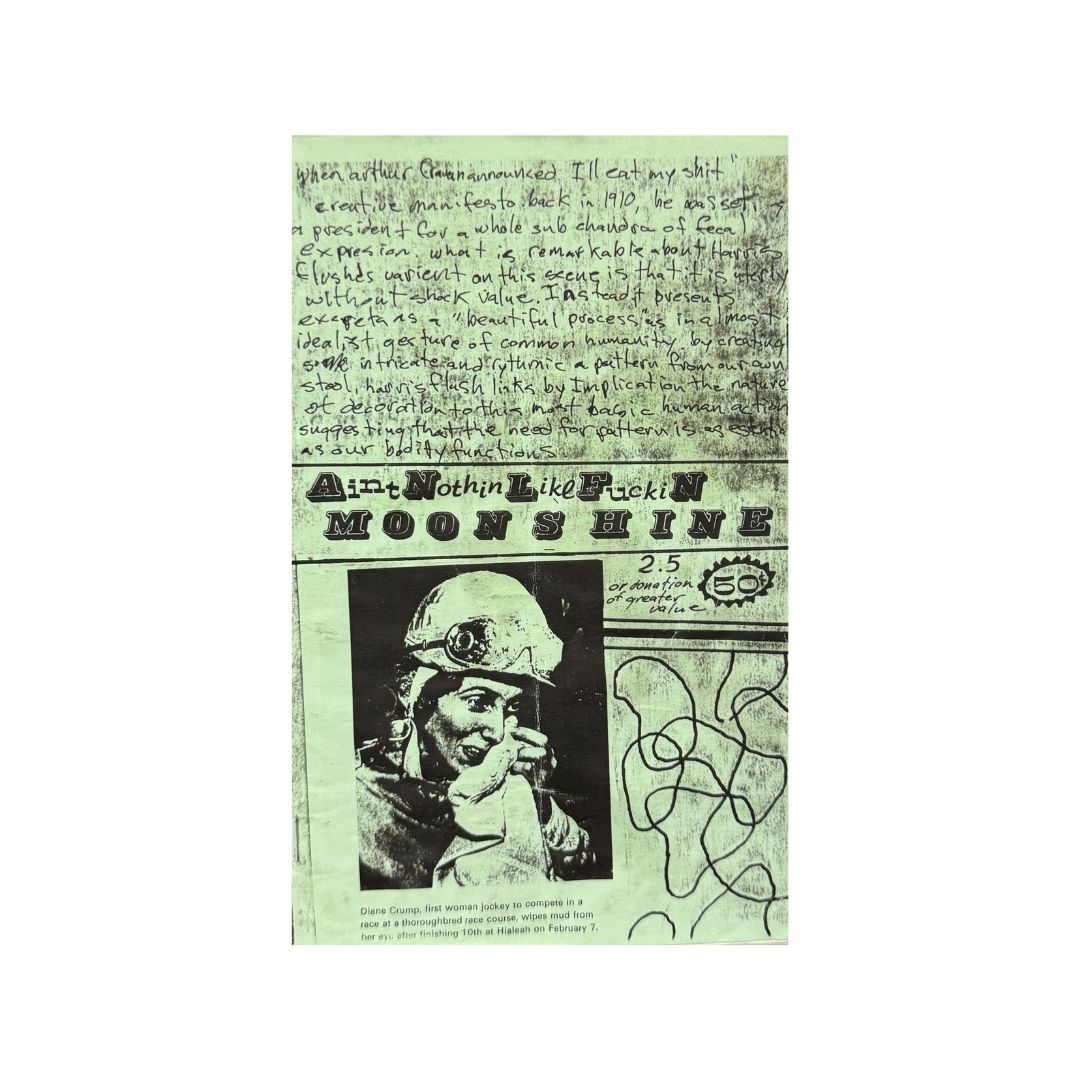 when arthur Cravan announced I'll eat my shit"
creative manifesto back in 1910, he was setting
a president for a whole sub chandra of fecal
expresion. what is remarkable about Harris
flushds varient on this scene is that it is utterly
without shock value. Instead it presents
excreta as a "beautiful process" as in almost
idealist gesture of common humanity. by creating
intricate and rytmic a pattern from our own
stool, harris flush links by Implication the nature
of decoration to this most basic human action
suggesting that the need for pattern is as
as our bodity functions
Aint Nothin Like Fuckin
MOONSHINE
2.5
or donation
of greater
value
50¢
Diane Crump, first woman jockey to compete in a
race at a thoroughbred race course, wipes mud from
her eye after finishing 10th at Hialeah on February 7.